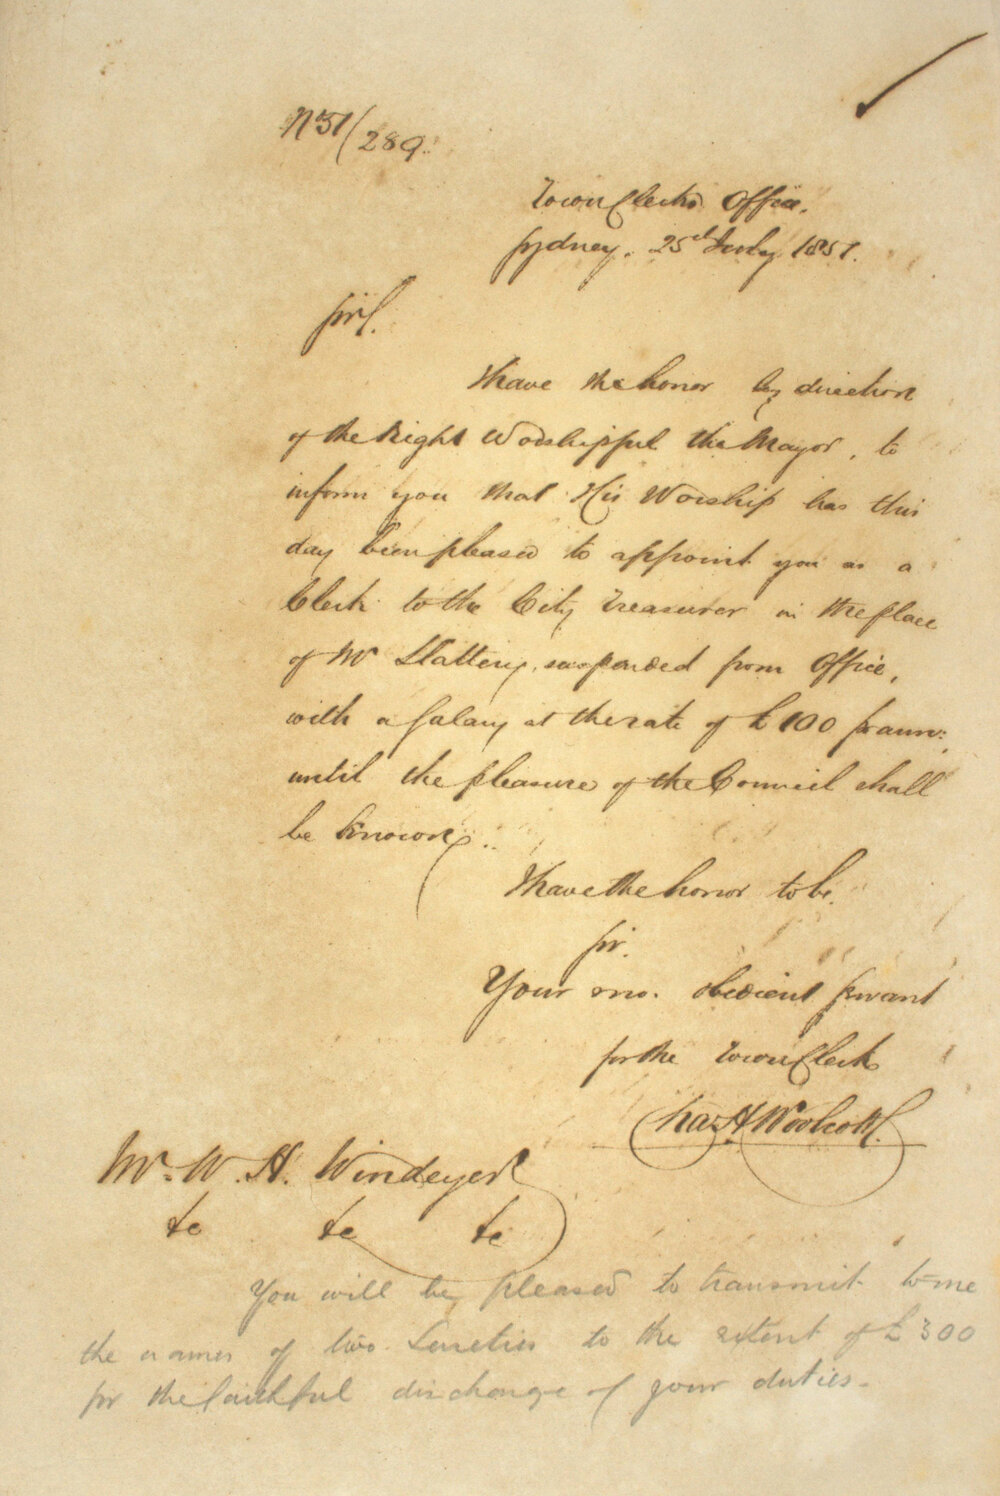 No 51/289.
Town Clerks Office.
Sydney. 25th July 1851.
Sir,
I have the honor by direction
of the Right Worshipful the Mayor, to
inform you that His Worship has this
day been pleased to appoint you as a
Clerk to the City Treasurer in the place
of Mr Slattery, suspended from Office,
with a Salary at the rate of £100 pr annm:
until the pleasure of the Council shall
be known.
I have the honor to be.
Sir.
Your mo. obedient Servant
for the Town Clerk
Chas H Woolcott.
Mr. W. H. Windeyer
&c &c &c
You will be pleased to transmit to me
the names of two Sureties to the extent of £300
for the faithful discharge of your duties.